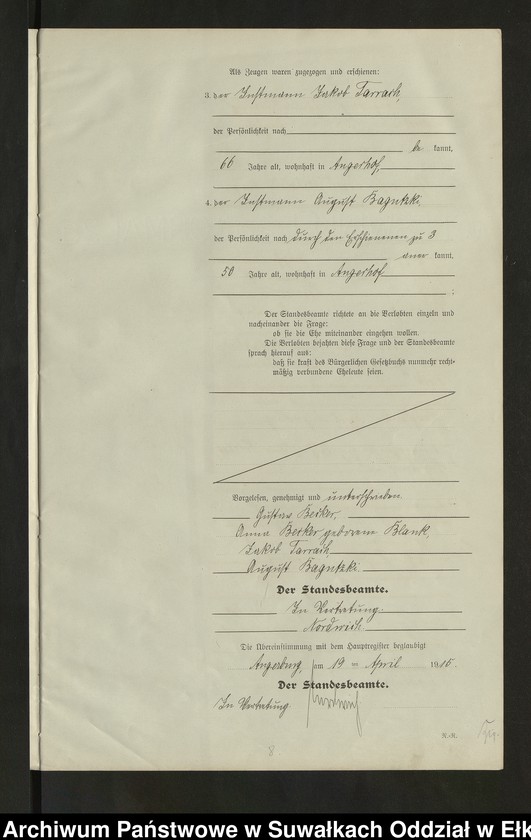 Als Zeugen waren zugezogen und erschienen:
3. der Instmann Jakob Tarrach,
der Persönlichkeit nach
be kannt,
66 Jahre alt, wohnhaft in Angerhof,
4. der Instmann August Bagutzki,
der Persönlichkeit nach durch den Erschienenen zu 3
aner kannt,
50 Jahre alt, wohnhaft in Angerhof
;
Der Standesbeamte richtete an die Verlobten einzeln und
nacheinander die Frage:
ob sie die Ehe miteinander eingehen wollen.
Die Verlobten bejahten diese Frage und der Standesbeamte
sprach hierauf aus:
daß sie kraft des Bürgerlichen Gesetzbuchs nunmehr recht-
mäßig verbundene Eheleute seien.
Vorgelesen, genehmigt und unterschrieben
Gustav Becker,
Anna Becker geborene Blank,
Jakob Tarrach
August Bagutzki
Der Standesbeamte.
In Vertretung
Die Übereinstimmung mit dem Hauptregister beglaubigt
Angerburg, am 19 ten April 1915
Der Standesbeamte.
In Vertretung
8
Archiwum Państwowe w Suwałkach Oddział w Ełk